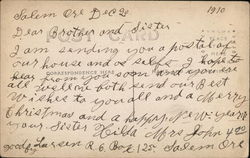 Salem Ore Dec 26 1910
Dear Brother and Sister
I am sending you a postal of
our house and selfs I hope to
CORRESPONDENCE HERE
hear from you soon and you are
all well we both send our Best
Wishes to you all and a Merry
Christmas and a happy New year
your Sister Hilda Mrs John
good by Larsen R 6 Box 125 Salem Ore